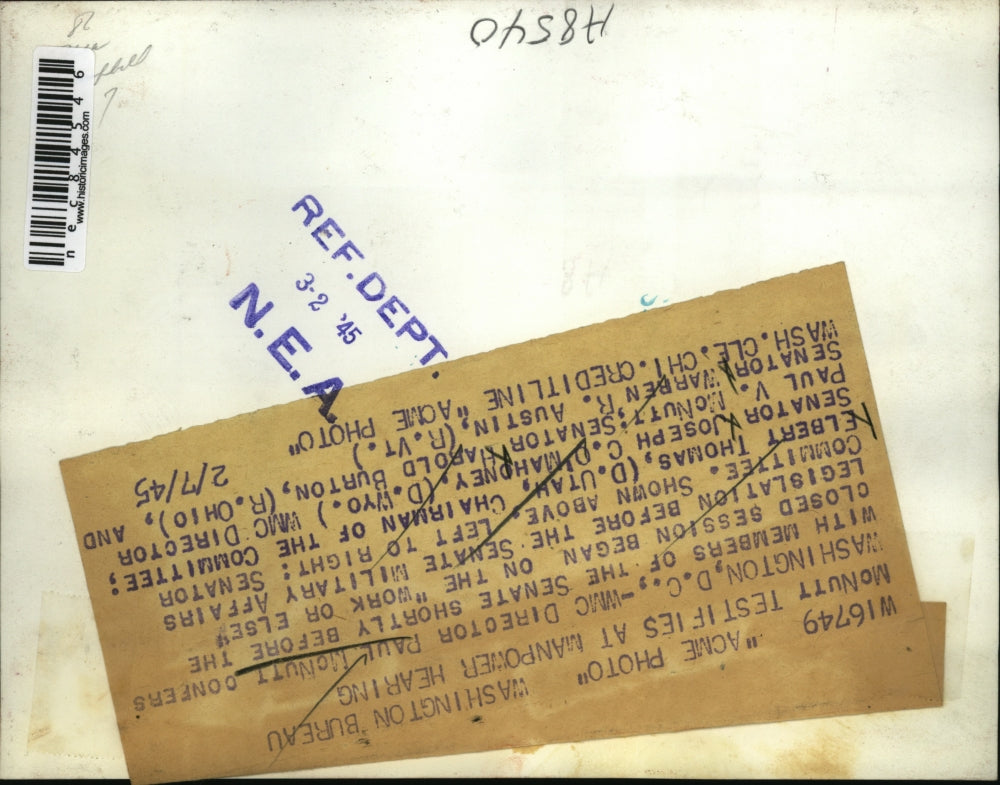 H8540
n e c 8 4 5 4 6
www.historicimages.com
REF.DEPT.
3-2 '45
N.E.A.
W16749 "ACME PHOTO" WASHINGTON BUREAU
McNUTT TESTIFIES AT MANPOWER HEARING
WASHINGTON, D.C., -WMC DIRECTOR PAUL McNUTT CONFERS
WITH MEMBERS OF THE SENATE SHORTLY BEFORE THE
CLOSED SESSION BEGAN ON THE "WORK OR ELSE"
LEGISLATION BEFORE THE SENATE MILITARY AFFAIRS
COMMITTEE. SHOWN ABOVE, LEFT TO RIGHT: SENATOR
ELBERT THOMAS, (D. UTAH, CHAIRMAN OF THE COMMITTEE;
SENATOR JOSEPH C. O'MAHONEY, (D. WYO.) WMC DIRECTOR
PAUL V. McNUTT; SENATOR HAROLD BURTON, (R. OHIO), AND
SENATOR WARREN R. AUSTIN, (R. VT.)
WASH.CLE.CHI. CREDITLINE "ACME PHOTO" 2/7/45